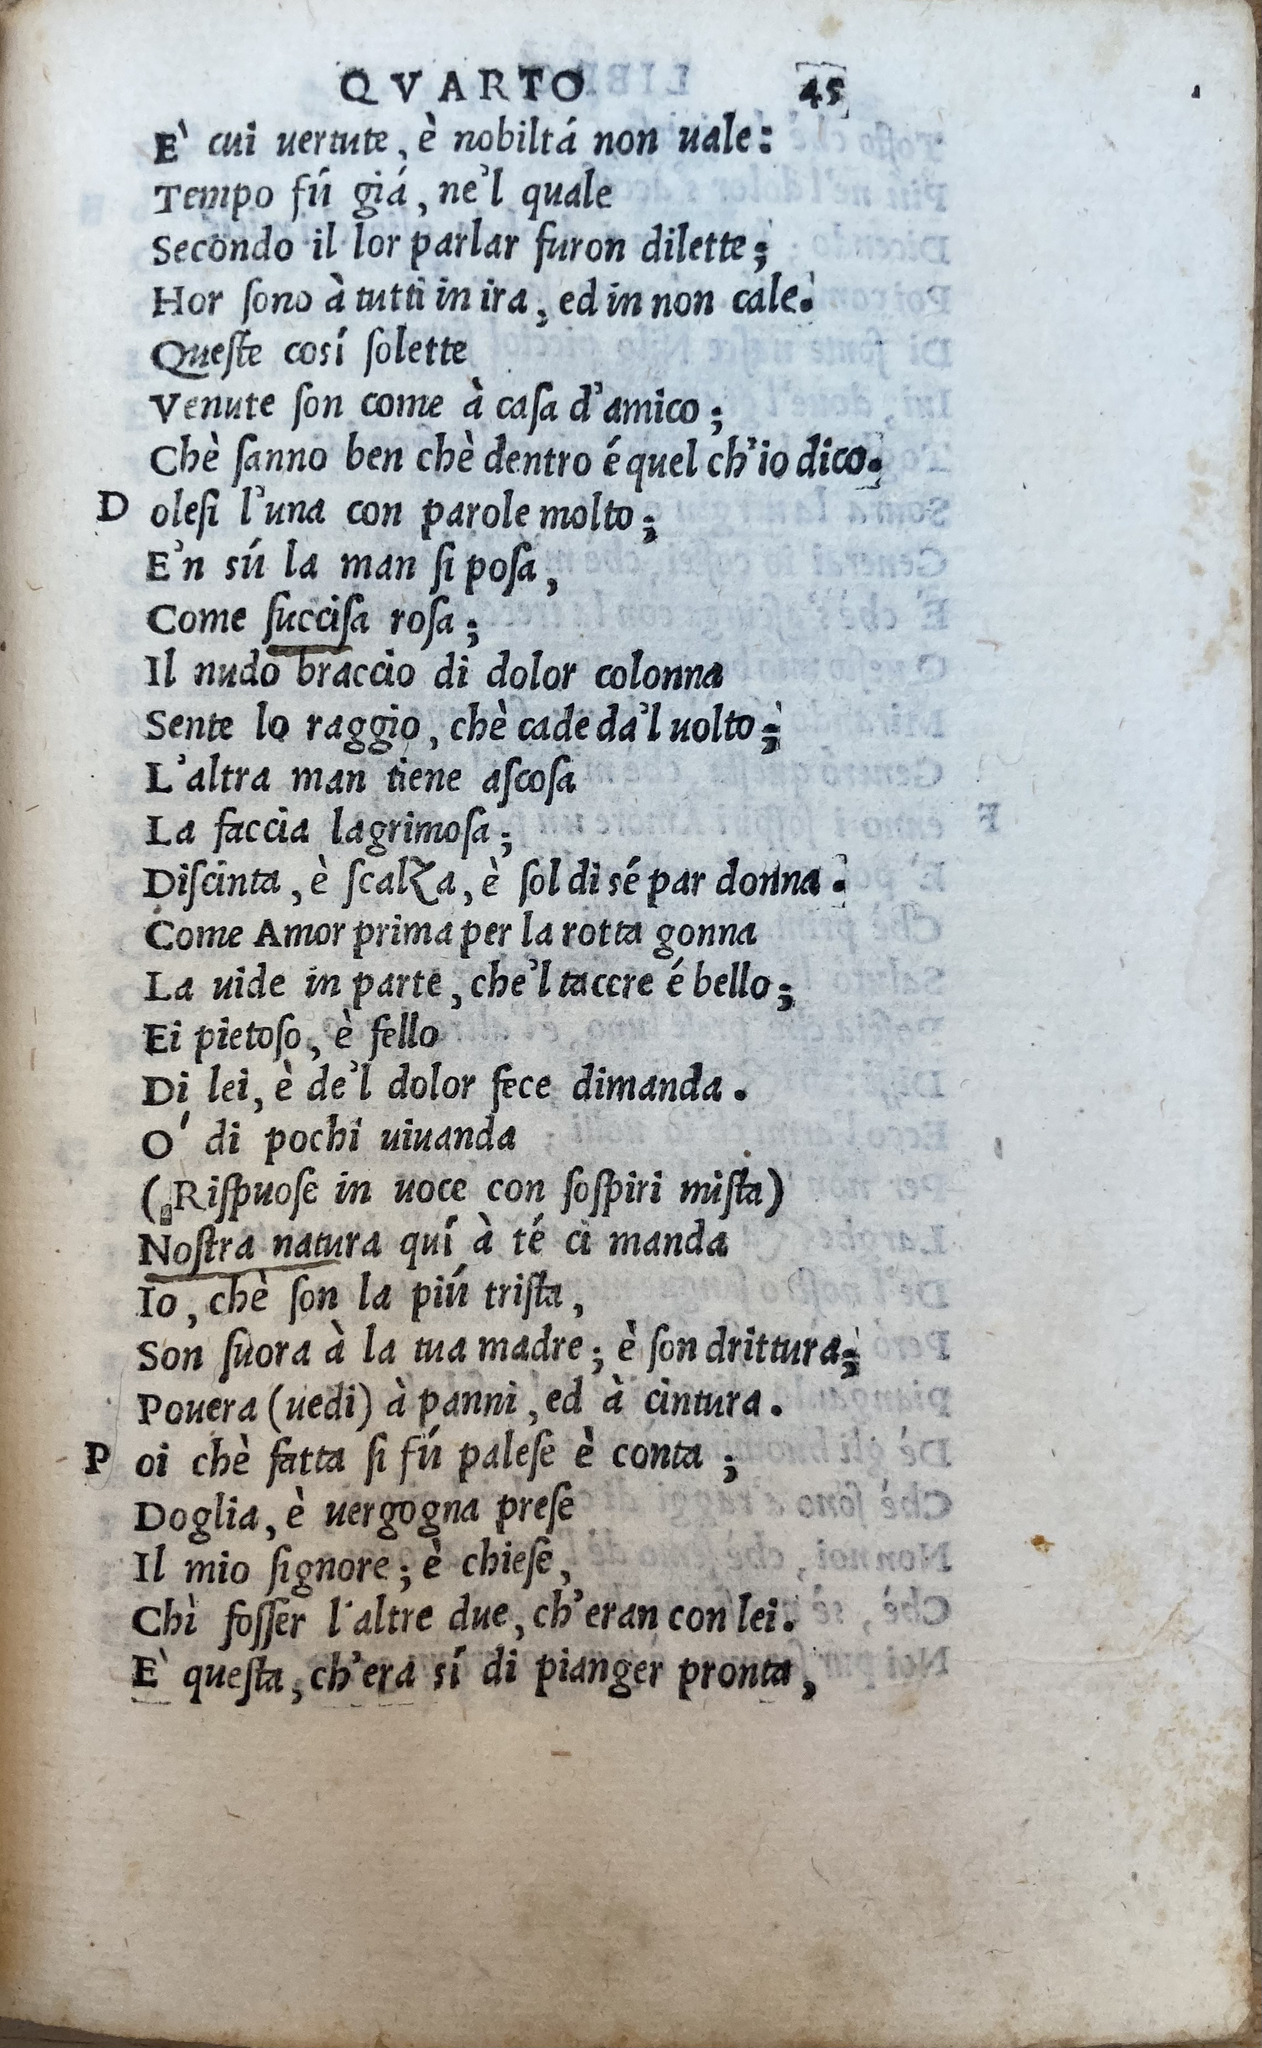 QVARTO 45
E` cui uertute, è nobiltá non uale:
Tempo fú giá, ne'l quale
Secondo il lor parlar furon dilette;
Hor ſono à tutti in ira, ed in non cale.
Queſte cosí ſolette
Venute ſon come à caſa d'amico;
Chè ſanno ben chè dentro é quel ch'io dico.
D oleſi l'una con parole molto;
E'n sú la man ſi poſa,
Come ſucciſa roſa;
Il nudo braccio di dolor colonna
Sente lo raggio, chè cade da'l uolto;
L'altra man tiene aſcoſa
La faccia lagrimoſa;
Diſcinta, è ſcalza, è ſol di sé par donna.
Come Amor prima per la rotta gonna
La uide in parte, che'l taccre é bello;
Ei pietoſo, è fello
Di lei, è de'l dolor fece dimanda.
O' di pochi uiuanda
(Riſpuoſe in uoce con ſoſpiri miſta)
Noſtra natura quí à té ci manda
Io, chè ſon la piú triſta,
Son ſuora à la tua madre; è ſon drittura;
Pouera (uedi) à panni, ed à cintura.
P oi chè fatta ſi fú paleſe è conta;
Doglia, è uergogna preſe
Il mio ſignore; è chieſe,
Chì foſſer l'altre due, ch'eran con lei.
E` queſta, ch'era sí di pianger pronta,